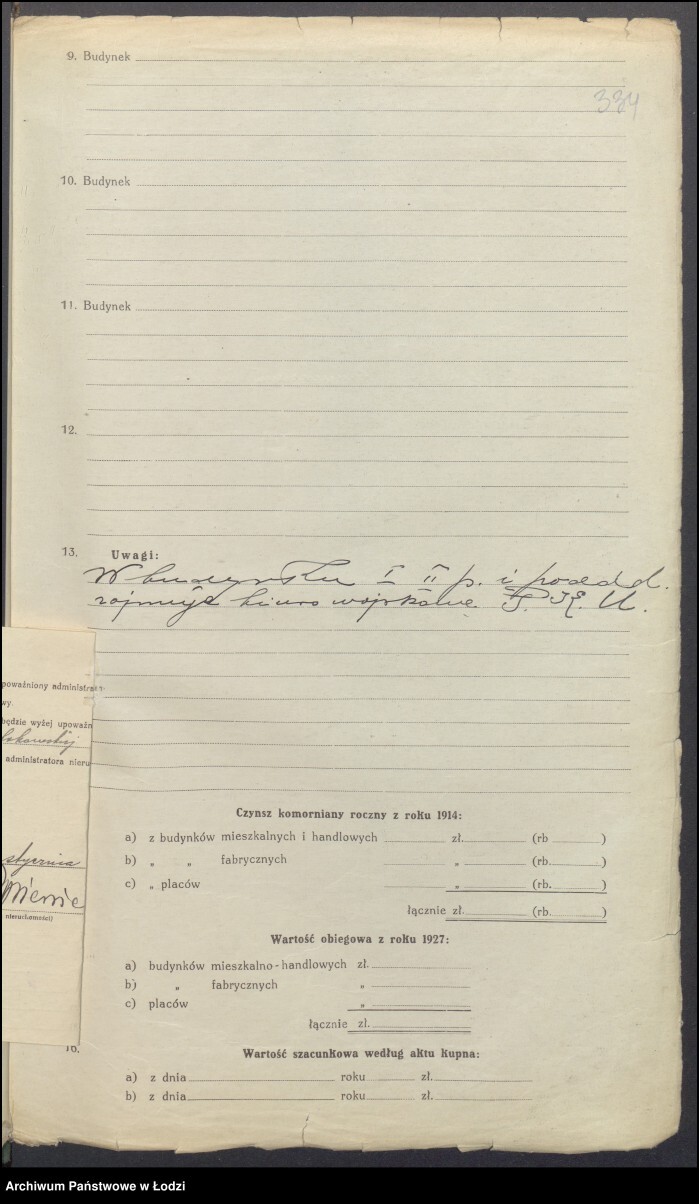 334
9. Budynek
10. Budynek
11. Budynek
12.
13. Uwagi:
W budynku I II p. i
zajmuje biuro wojskowe P. K. U.
poważniony administrat
wy.
będzie wyżej upoważn
administratora nieru
stycznia
nieruchomości)
Czynsz komorniany roczny z roku 1914:
a) z budynków mieszkalnych i handlowych zł. (rb )
b) „ „ fabrycznych „ (rb. )
c) „ placów „ (rb. )
łącznie zł. (rb. )
Wartość obiegowa z roku 1927:
a) budynków mieszkalno-handlowych zł.
b) „ fabrycznych „
c) placów „
łącznie zł.
16. Wartość szacunkowa według aktu kupna:
a) z dnia roku zł.
b) z dnia roku zł.
Archiwum Państwowe w Łodzi